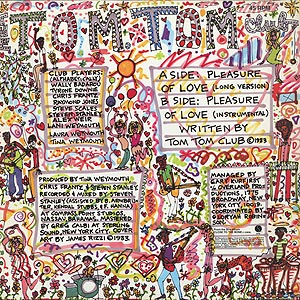 TOM TOM
45 RPM
CLUB PLAYERS:
WALLY BADAROU
TYRONE DOWNIE
CHRIS FRANTZ
RAYMOND JONES
STEVE SCALES
STEVEN STANLEY
ALEX WEIR
LANI WEYMOUTH
LAURA WEYMOUTH
TINA WEYMOUTH
A SIDE: PLEASURE
OF LOVE (LONG VERSION)
B SIDE: PLEASURE
OF LOVE (INSTRUMENTAL)
WRITTEN BY
TOM TOM CLUB ©1983
PRODUCED BY TINA WEYMOUTH,
CHRIS FRANTZ & STEVEN STANLEY
RECORDED & MIXED BY STEVEN
STANLEY (ASSISTED BY
AT COMPASS POINT STUDIOS,
NASSAU, BAHAMAS. MASTERED
BY GREG CALBI AT STERLING
SOUND, NEW YORK CITY. COVER
ART BY JAMES RIZZI ©1983
MANAGED BY
GARY KURFIRST
OVERLAND PRO-
DUCTIONS, 1775
BROADWAY, NEW
YORK CITY, 10019
COORDINATED BY